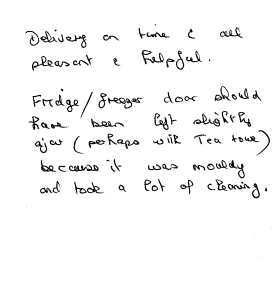 Delivery on time & all
pleasant & helpful.
Fridge/freezer door should
have been left slightly
ajar (perhaps with Tea towel)
because it was mouldy
and took a lot of cleaning.